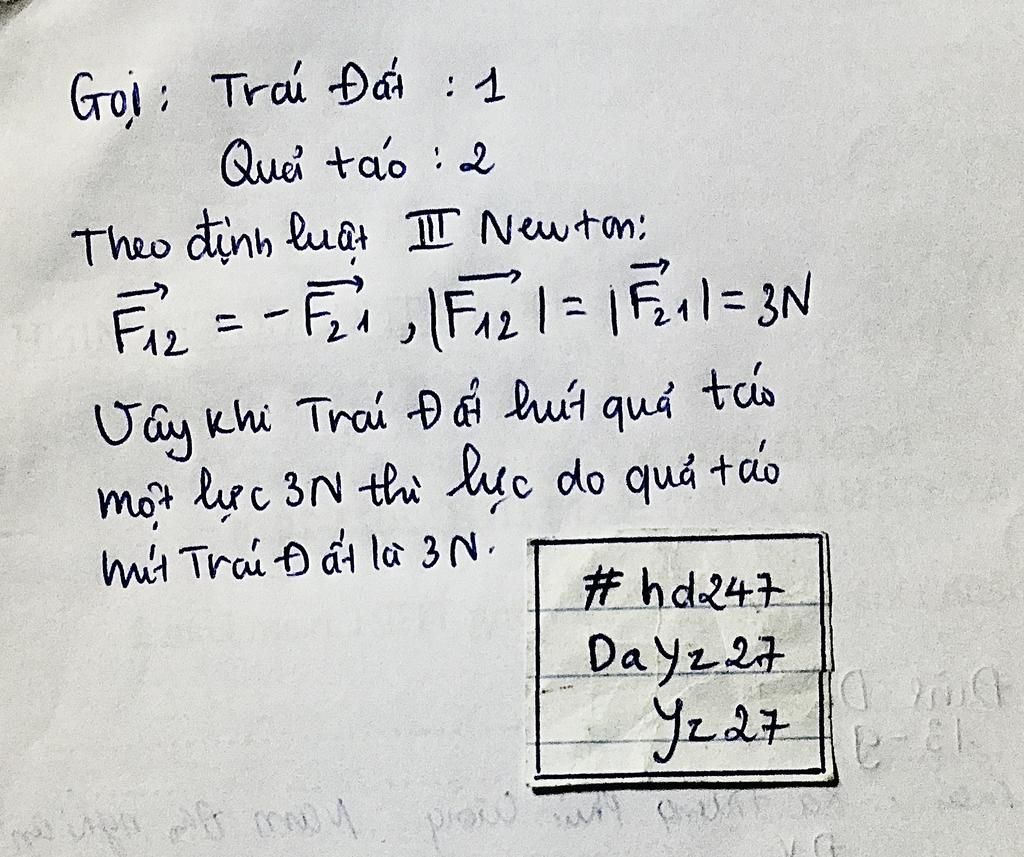 Gọi: Trái Đất : 1
Quả táo : 2
Theo định luật III Newton:
F₁₂ = -F₂₁, |F₁₂| = |F₂₁| = 3N
Vậy khi Trái Đất hút quả táo
một lực 3N thì lực do quả táo
hút Trái Đất là 3N.
# hd247
Dayz27
Yz27